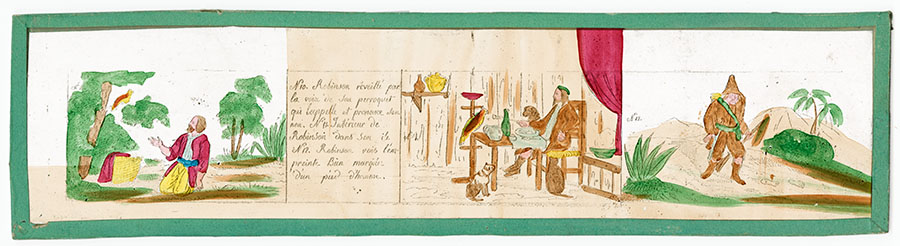 No. Robinson réveillé par
la voix de son perroquet
qui l'appelle et prononce son
nom. No. Intérieur de
Robinson dans son île.
No. Robinson vois l'em
preinte Bien marquée
d'un pied d'homme.